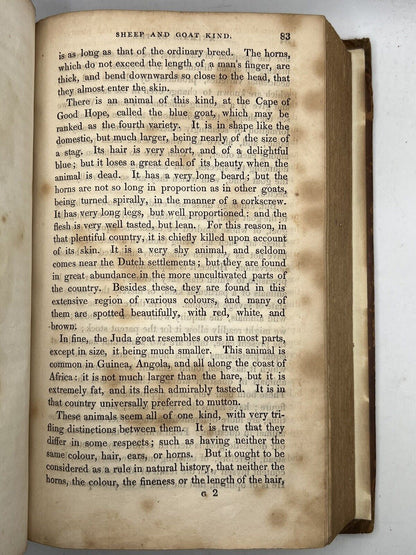 SHEEP AND GOAT KIND. 83
is as long as that of the ordinary breed. The horns,
which do not exceed the length of a man's finger, are
thick, and bend downwards so close to the head, that
they almost enter the skin.
There is an animal of this kind, at the Cape of
Good Hope, called the blue goat, which may be
ranked as the fourth variety. It is in shape like the
domestic, but much larger, being nearly of the size of
a stag. Its hair is very short, and of a delightful
blue; but it loses a great deal of its beauty when the
animal is dead. It has a very long beard; but the
horns are not so long in proportion as in other goats,
being turned spirally, in the manner of a corkscrew.
It has very long legs, but well proportioned: and the
flesh is very well tasted, but lean. For this reason, in
that plentiful country, it is chiefly killed upon account
of its skin. It is a very shy animal, and seldom
comes near the Dutch settlements; but they are found
in great abundance in the more uncultivated parts of
the country. Besides these, they are found in this
extensive region of various colours, and many of
them are spotted beautifully, with red, white, and
brown.
In fine, the Juda goat resembles ours in most parts,
except in size, it being much smaller. This animal is
common in Guinea, Angola, and all along the coast of
Africa: it is not much larger than the hare, but it is
extremely fat, and its flesh admirably tasted. It is in
that country universally preferred to mutton.
These animals seem all of one kind, with very tri-
fling distinctions between them. It is true that they
differ in some respects; such as having neither the
same colour, hair, ears, or horns. But it ought to be
considered as a rule in natural history, that neither the
horns, the colour, the fineness or the length of the hair,
G 2